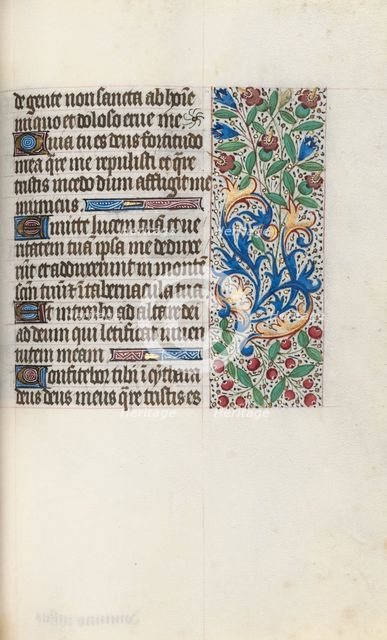 de gente non sancta ab hoı̄e
iniquo et doloso erue me.
Quia tu es deus fortitudo
mea qre me repulisti et qre
tristis incedo dum affligit me
inimicus.
Emitte lucem tuā et ue
ritatem tuā ipsa me deduxe
rūt et adduxerunt in montē
sanctū tuū et ī tabernacula tua
Et introibo ad altare dei
ad deum qui letificat iuuen
tutem meam
Confitebor tibi ī cythara
deus deus meus qre tristis es
heritage
Heritage